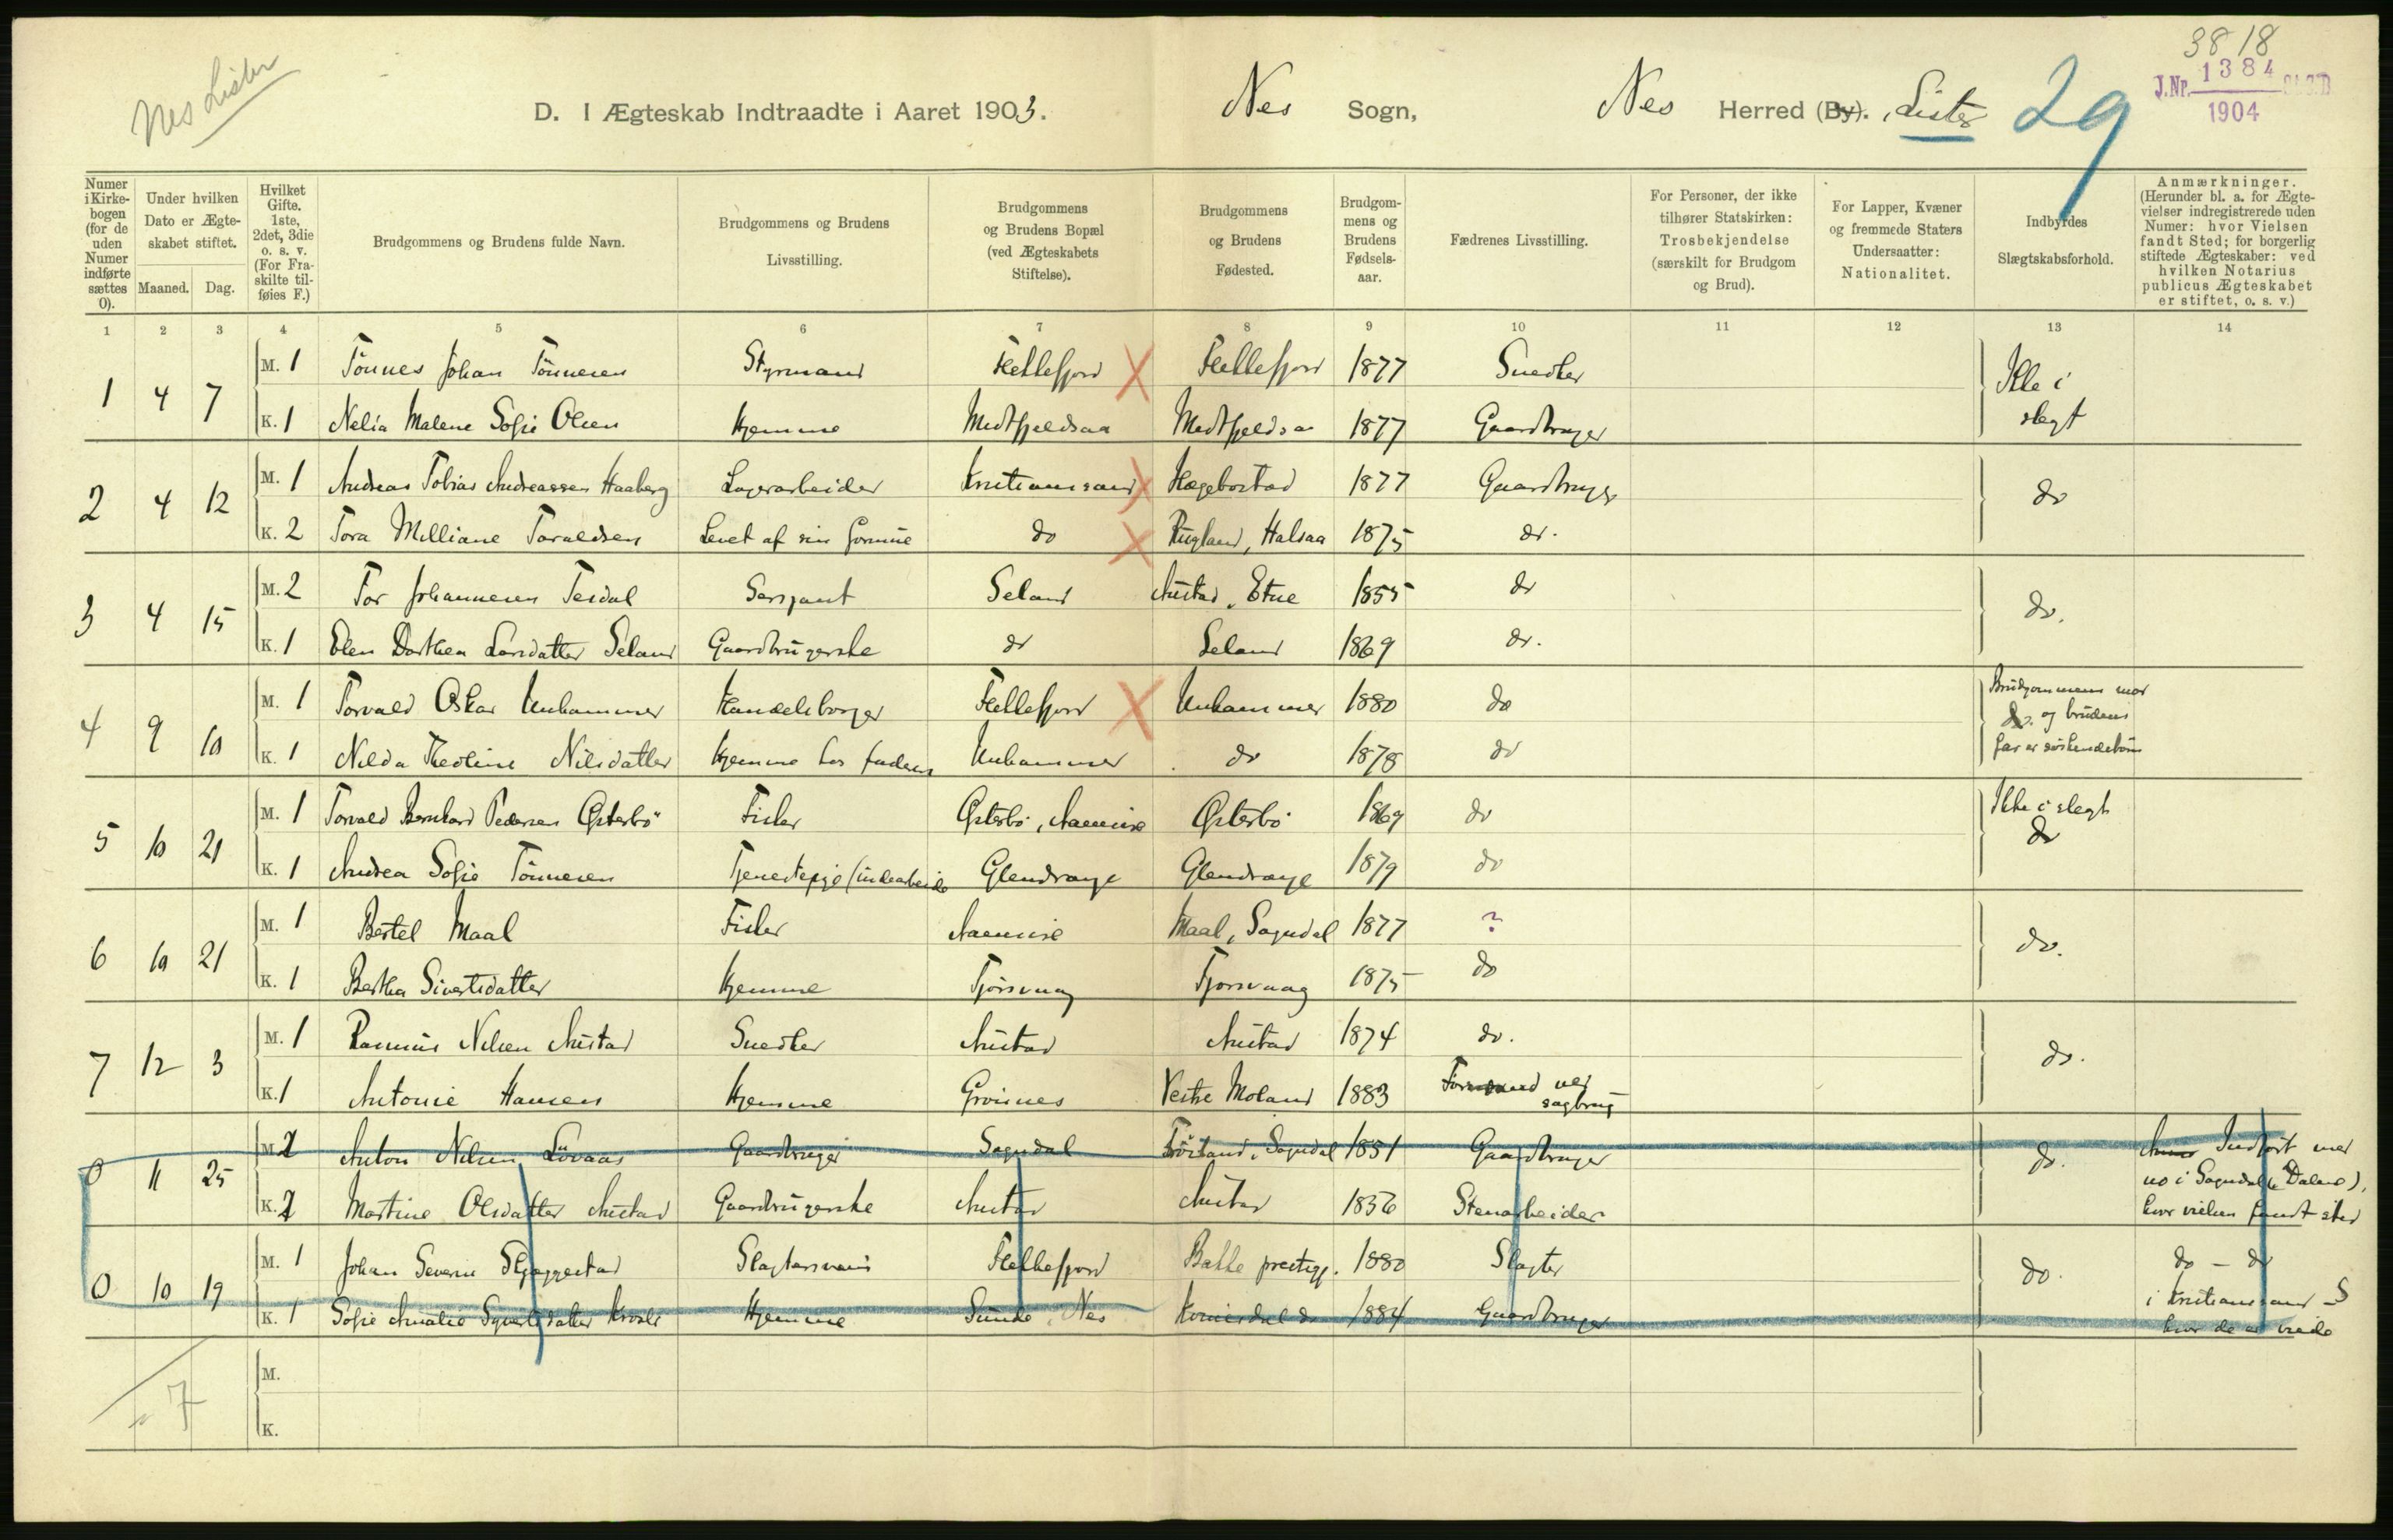 Nes Lister
D. I Ægteskab Indtraadte i Aaret 1903. Nes Sogn, Nes Herred (By). Lister 29
3818
J.Nr. 1384
1904
Numer i Kirke-bogen (for de uden Numer indførte sættes 0).
Under hvilken Dato er Ægte-skabet stiftet.
Maaned. Dag.
Hvilket Gifte. 1ste, 2det, 3die o. s. v. (For Fra-skilte til-føies F.)
Brudgommens og Brudens fulde Navn.
Brudgommens og Brudens Livsstilling.
Brudgommens og Brudens Bopæl (ved Ægteskabets Stiftelse).
Brudgommens og Brudens Fødested.
Brudgom-mens og Brudens Fødsels-aar.
Fædrenes Livsstilling.
For Personer, der ikke tilhører Statskirken: Trosbekjendelse (særskilt for Brudgom og Brud).
For Lapper, Kvæner og fremmede Staters Undersaatter: Nationalitet.
Indbyrdes Slægtskabsforhold.
Anmærkninger. (Herunder bl. a. for Ægte-vielser indregistrerede uden Numer: hvor Vielsen fandt Sted; for borgerlig stiftede Ægteskaber: ved hvilken Notarius publicus Ægteskabet er stiftet, o. s. v.)
1 2 3 4 5 6 7 8 9 10 11 12 13 14
1 4 7 M. 1 Tönnes Johan Tönnesen Styrmand Flekkefjord Flekkefjord 1877 Snedker Ikke i slegt
K. 1 Nelia Malene Sofie Olsen Hjemme Medtfjeldsaa Medtfjeldsaa 1877 Gaardbruger
2 4 12 M. 1 Andreas Tobias Andreassen Haaberg Lagerarbeider Kristianssand Hægebostad 1877 Gaardbruger do
K. 2 Tora Milliane Taraldsen Levet af sin formue do Rugland, Halsaa 1875 do.
3 4 15 M. 2 Tor Johannesen Tesdal Sersjant Seland Austad, Etne 1855 do do.
K. 1 Elen Dorthea Larsdatter Seland Gaardbrugerske do Seland 1869 do.
4 9 10 M. 1 Torvald Oskar Unhammer Handelsborger Flekkefjord Unhammer 1880 do Brudgommens mor og brudens far er söskendebörn
K. 1 Nilda Theoline Nilsdatter Hjemme hos faderen Unhammer do 1878 do
5 10 21 M. 1 Torvald Bernhard Pedersen Österbö Fisker Österbö, Aaensire Österbö 1869 do Ikke i slegt do
K. 1 Andrea Sofie Tönnesen Tjenestepige (indearbeide Glendrange Glendrange 1879 do
6 10 21 M. 1 Bertel Maal Fisker Aaensire Maal, Sogndal 1877 ? do.
K. 1 Bertha Sivertsdatter Hjemme Tjörsvaag Tjorsvaag 1875 do
7 12 3 M. 1 Rasmus Nilsen Austad Snedker Austad Austad 1874 do. do.
K. 1 Antonie Hansen Hjemme Grøisnes Vestre Moland 1883 Formand ved sagbrug
0 11 25 M. 2 Anton Nilsen Lövaas Gaardbruger Sogndal Fröitland, Sogndal 1851 Gaardbruger do. Indført med no i Sogndal (Dalene), hvor vielsen fandt sted
K. 2 Martine Olsdatter Austad Gaardbrugerske Austad Austad 1856 Stenarbeider
0 10 19 M. 1 Johan Severin Skjeggestad Slagtersvend Flekkefjord Bakke prestegj. 1880 Slagter do. do - do
K. 1 Sofie Amalie Syvertsdatter Hjemme Sunde, Nes Kvinesdal do 1884 Gaardbruger i Kristianssand S hvor de er viede
M.
K.
= 7